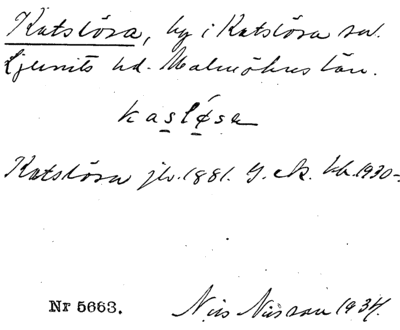 Katslösa, by i Katslösa sn.
Ljunits hd. Malmöhus län.
kaslǿsa
Katslösa jlv. 1881. G. ek. kb. 1930.
Nr 5663. Nils Nilsson 1934.